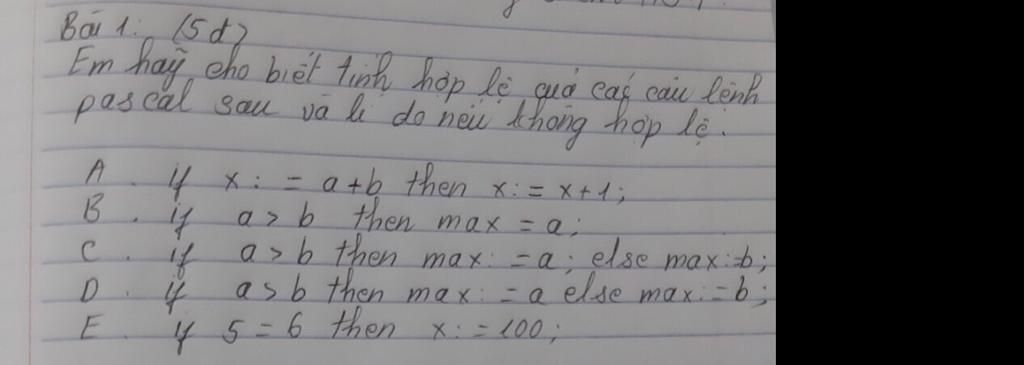 Bài 1: (5đ)
Em hãy cho biết tính hợp lệ quả các câu lệnh
pascal sau và lí do nếu không hợp lệ.
A. if x: = a+b then x: = x+1;
B. if a > b then max = a;
C. if a > b then max: = a; else max:=b;
D. if a > b then max: = a else max: = b;
E. if 5 = 6 then x: = 100;